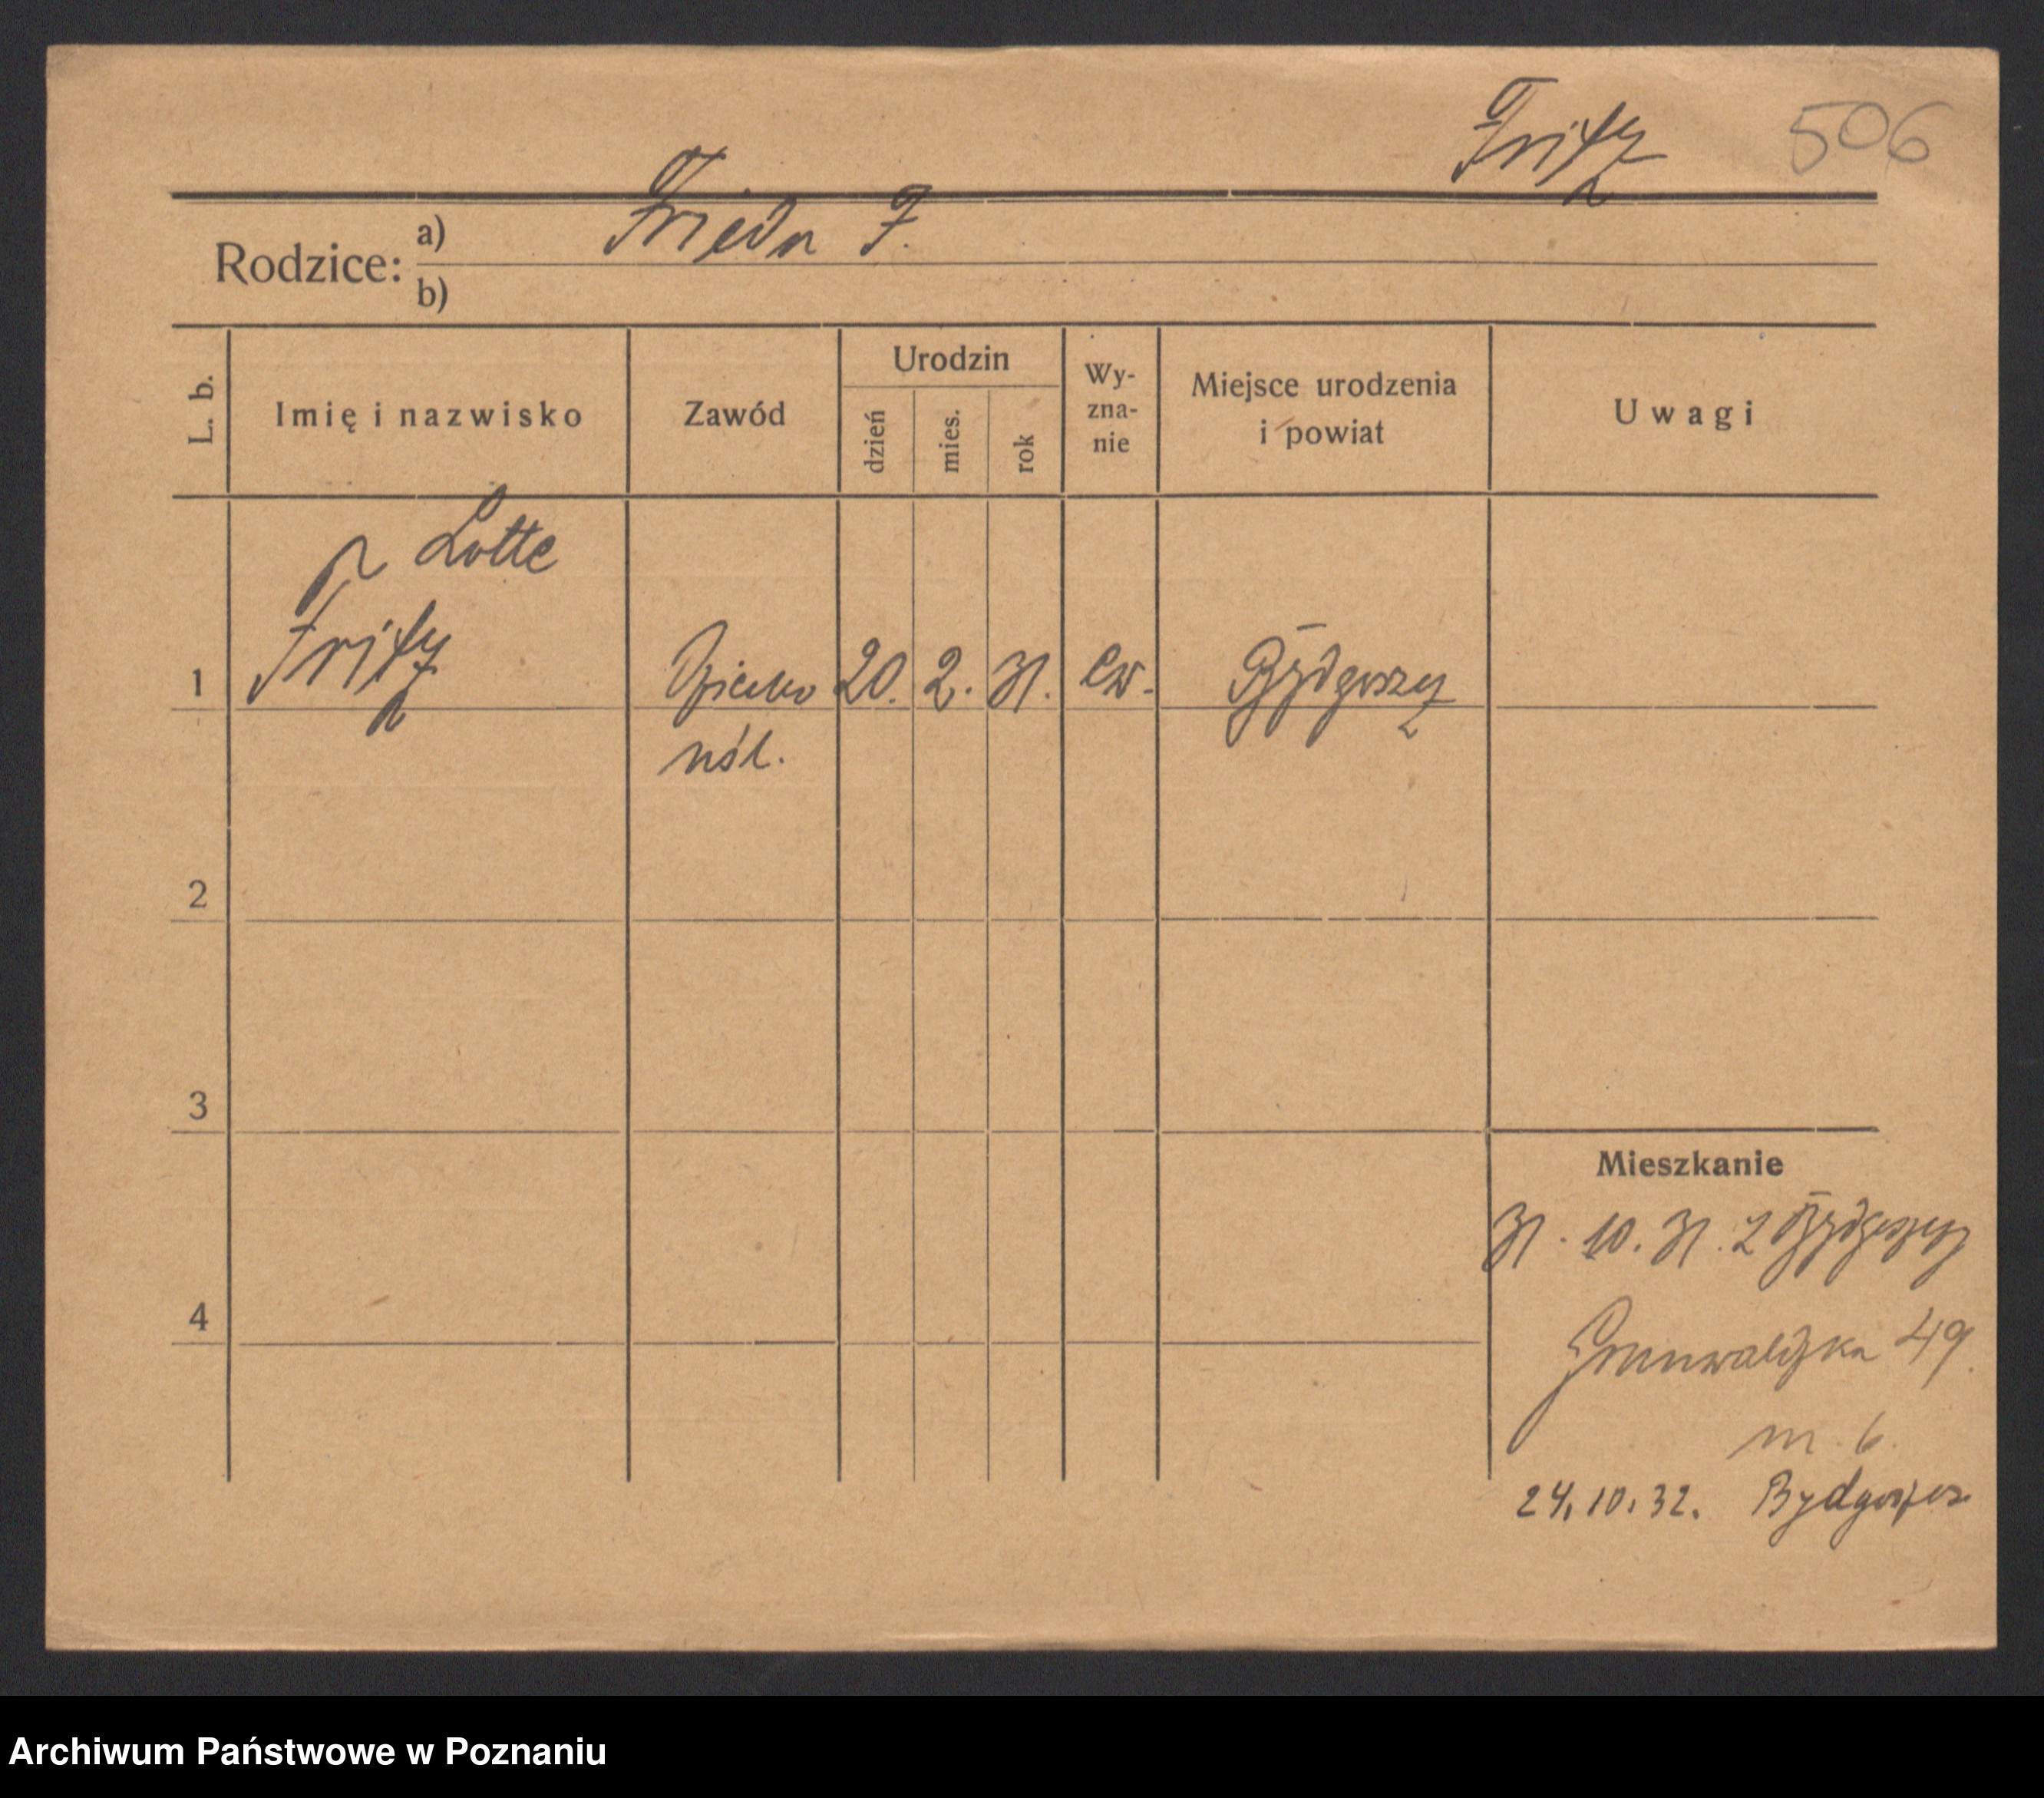 Fritz 506
Rodzice: a) Frieda F.
b)
L. b. Imię i nazwisko Zawód Urodzin dzień mies. rok Wy-zna-nie Miejsce urodzenia i powiat Uwagi
Lotte
1 Fritz Dziecko 20. 2. 31. ew. Bydgoszcz
nśl.
2
3
Mieszkanie
31. 10. 31. z Bydgoszczy
4
Grunwaldzka 49.
m. 6.
24.10.32. Bydgoszcz
Archiwum Państwowe w Poznaniu